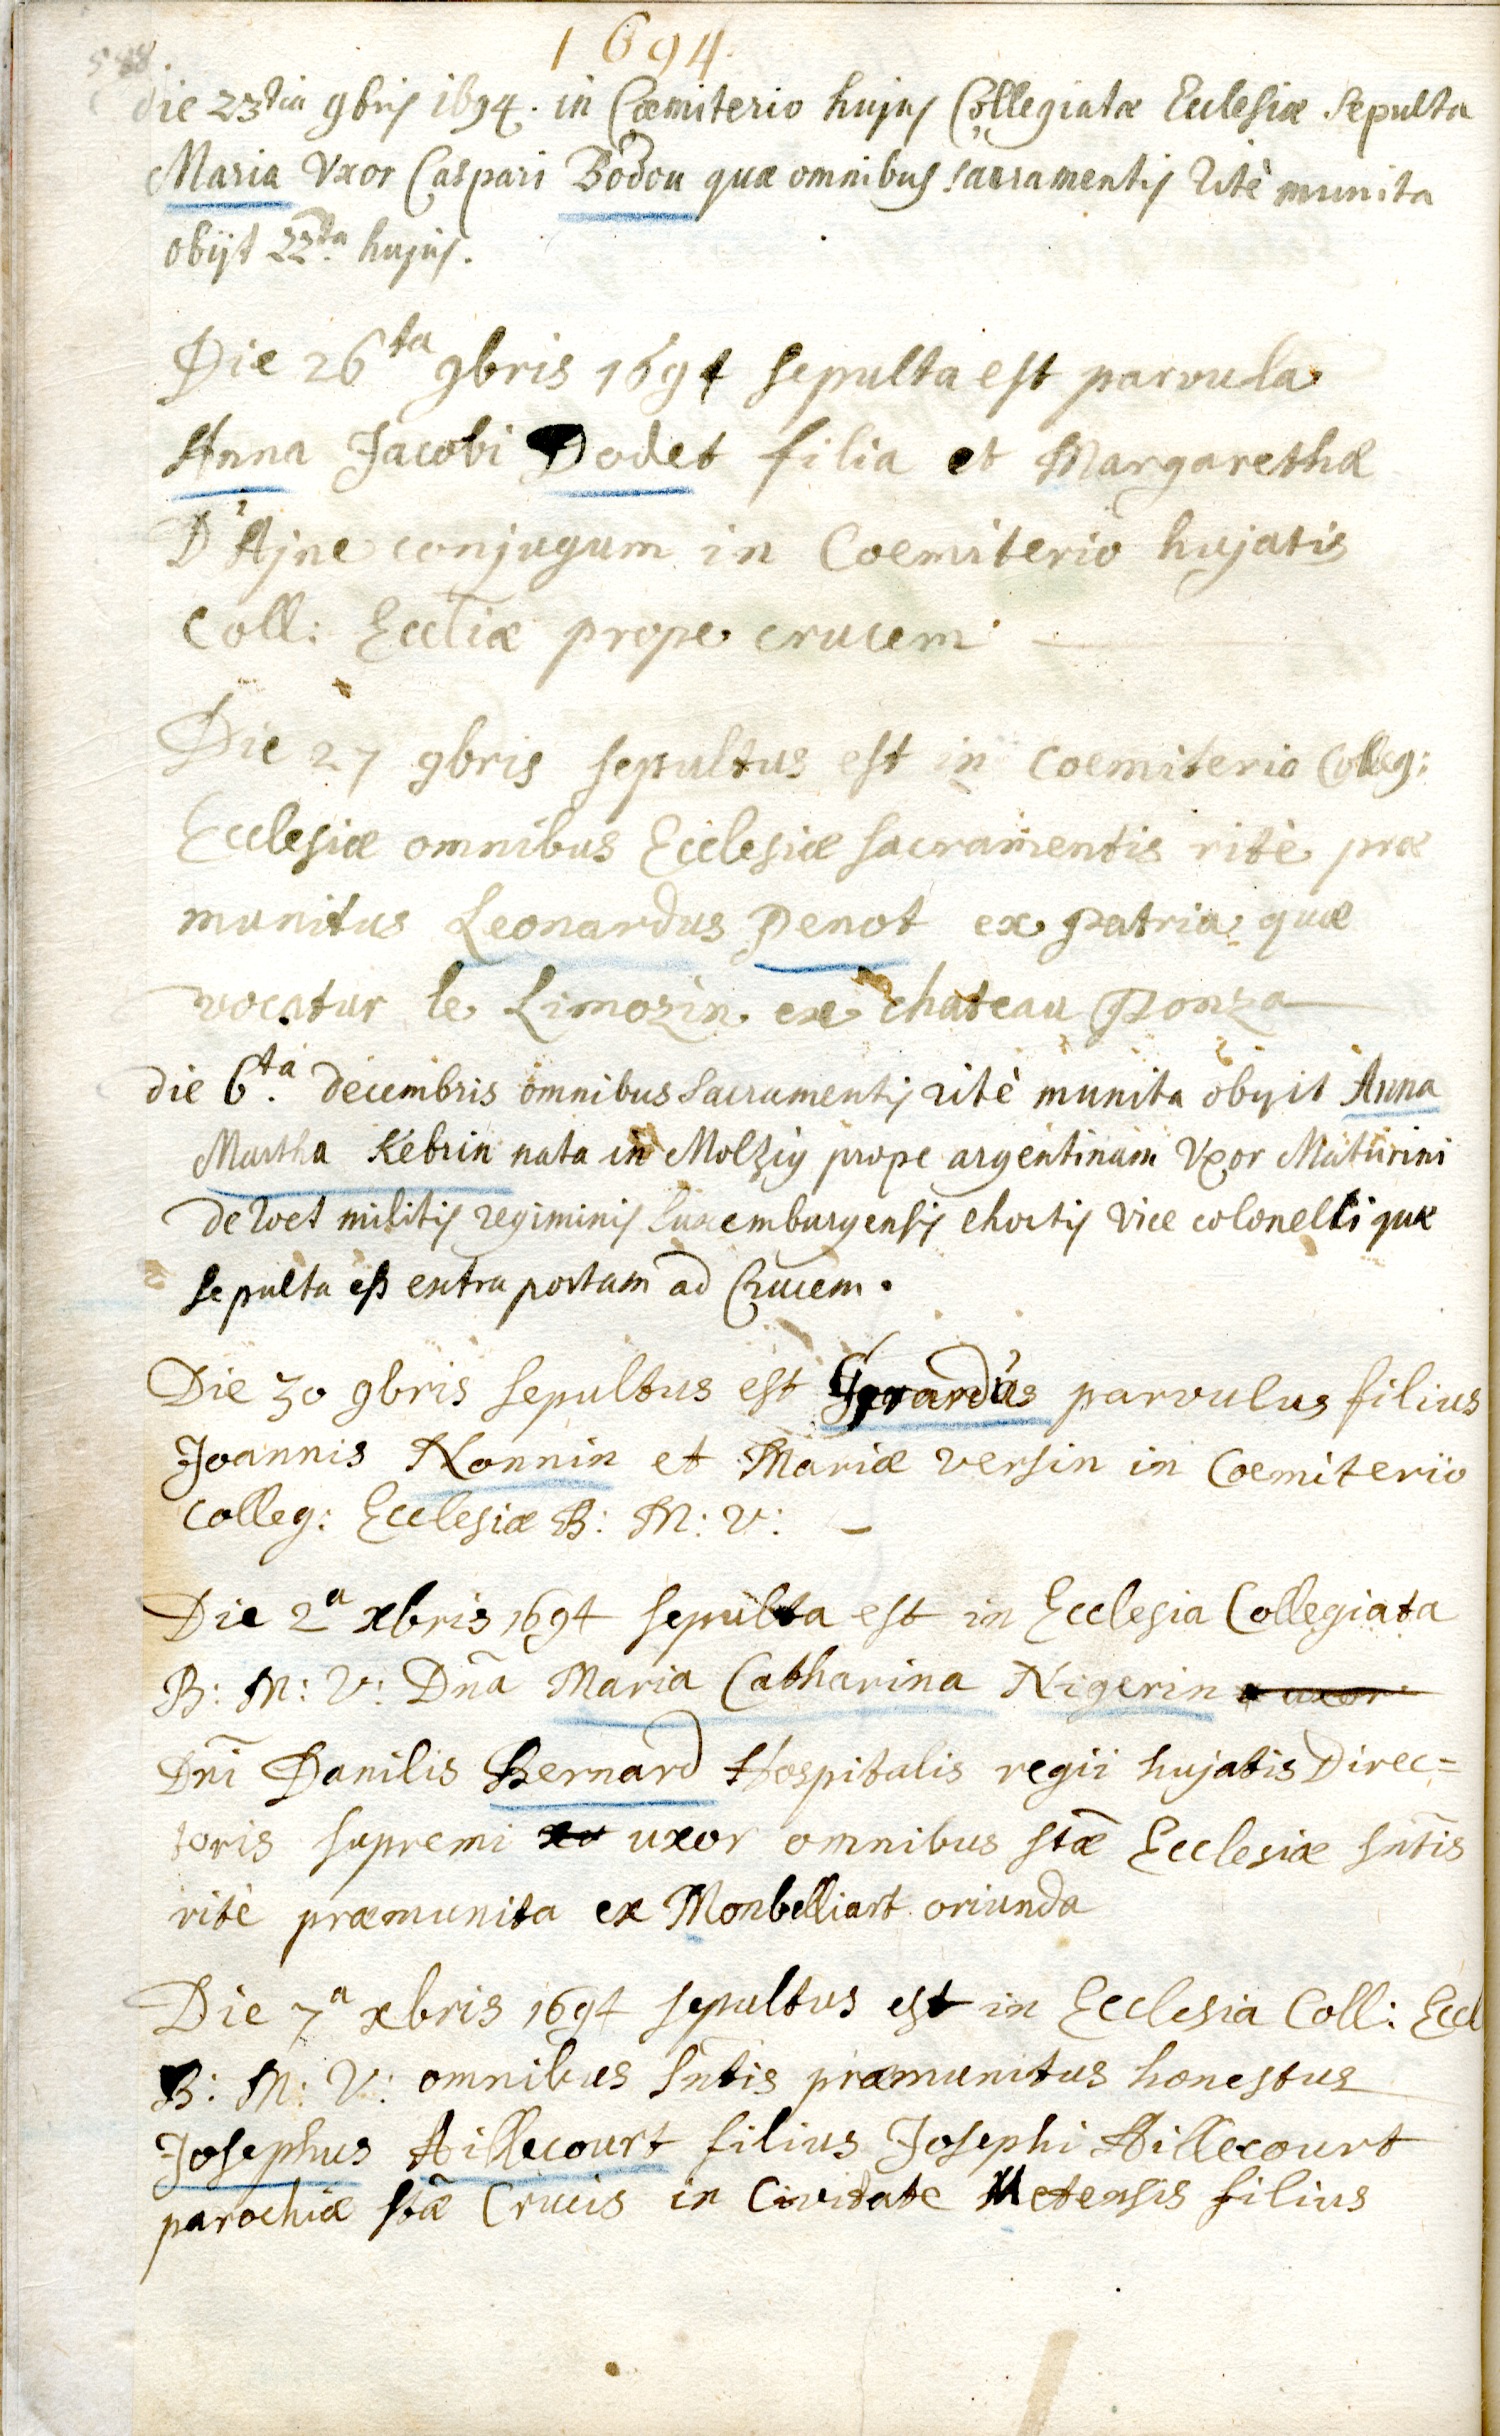 1694.
die 23tia 9brij 1694. in Cœmiterio hujuj Collegiatæ Ecclesiæ sepulta
Maria Vxor Caspari Bodou quæ omnibuj sacramentij ritè munita
obijt 22ta hujuj.
Die 26ta 9bris 1694 sepulta est parvula
Anna Jacobi Dodet filia et Margarethæ
D'Ajne conjugum in Coemiterio hujatis
Coll: Eccliæ prope crucem
Die 27 9bris sepultus est in Coemiterio Colleg:
Ecclesiæ omnibus Ecclesiæ sacramentis ritè præ
munitus Leonardus Penot ex patria quæ
vocatur le Limozin ex chateau Ponza
die 6ta. decembris omnibus sacramentij ritè munita obyit Anna
Martha Kebrin nata in Molzig prope argentinam Vxor Maturini
de loet militij regiminij Luxemburgensij chortij vice colonelli quæ
sepulta est extra portam ad Crucem.
Die 30 9bris sepultus est Gerardus parvulus filius
Joannis Nonnin et Mariæ versin in Coemiterio
Colleg: Ecclesiæ B: M: V:
Die 2a xbris 1694 sepulta est in Ecclesia Collegiata
B: M: V: Dña Maria Catharina Nigerin uxor
Dñi Danilis Bernard Hospitalis regii hujatis Direc=
toris supremi uxor omnibus stæ Ecclesiæ sñtis
ritè præmunita ex Monbelliart oriunda
Die 7a xbris 1694 sepultus est in Ecclesia Coll: Eccl
B: M: V: omnibus sñtis præmunitus honestus
Josephus Aillecourt filius Josephi Aillecourt
parochiæ stæ Crucis in Civitate Metensis filius